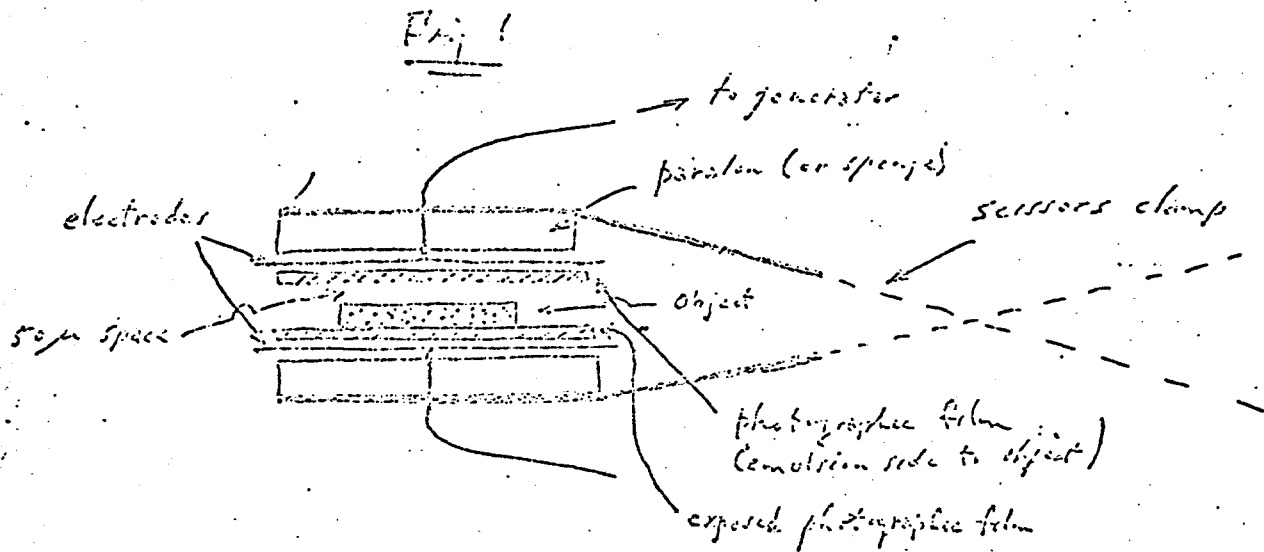 Fig 1
to generator
paralon (or sponge)
electrodes
scissors clamp
object
50 μ space
photographic film
(emulsion side to object)
exposed photographic film